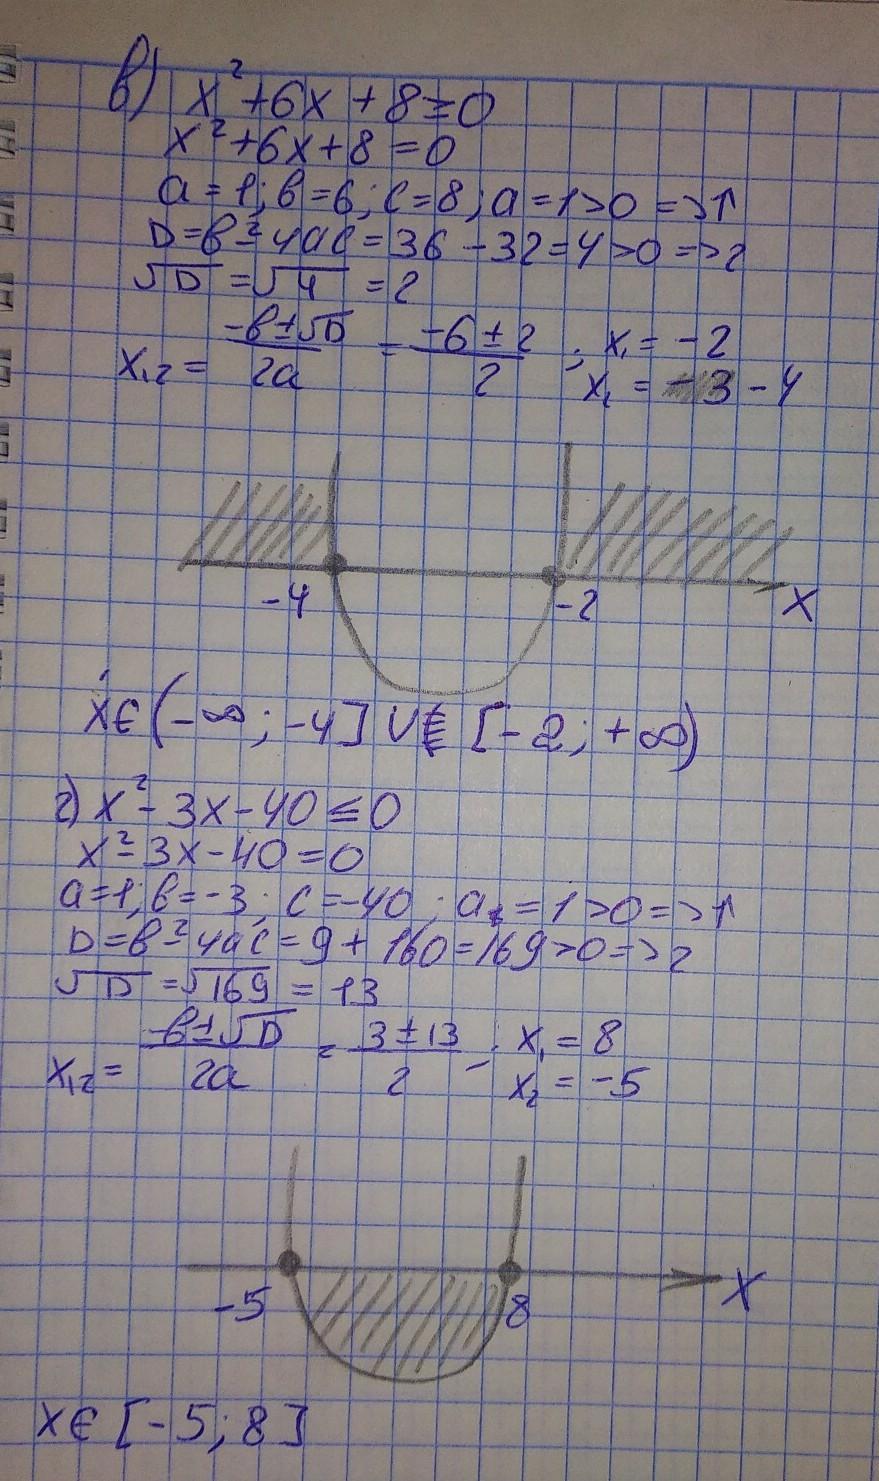 в) x² + 6x + 8 ≥ 0
x² + 6x + 8 = 0
a = 1; в = 6; c = 8; a = 1 > 0 => ↑
D = в² - 4ac = 36 - 32 = 4 > 0 => 2
√D = √4 = 2
x₁,₂ = (-в ± √D)/2a = (-6 ± 2)/2; x₁ = -2
x₂ = -4
-4 -2 x
x ∈ (-∞; -4] ∪ [-2; +∞)
г) x² - 3x - 40 ≤ 0
x² - 3x - 40 = 0
a = 1; в = -3; c = -40; a = 1 > 0 => ↑
D = в² - 4ac = 9 + 160 = 169 > 0 => 2
√D = √169 = 13
x₁,₂ = (-в ± √D)/2a = (3 ± 13)/2; x₁ = 8
x₂ = -5
-5 8 x
x ∈ [-5; 8]